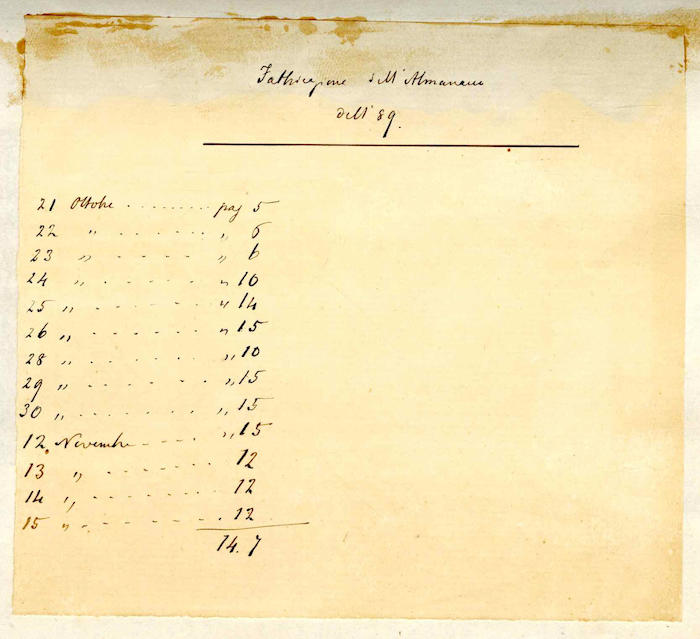 Fabbricazione dell'Almanacco
dell' 89.
21 Ottobre ........ pag 5
22 " ...... " 6
23 " ..... " 6
24 " ...... " 10
25 " ...... " 14
26 " ...... " 15
28 " ...... " 10
29 " ...... " 15
30 " ....... " 15
12 Novembre .... " 15
13 " ....... 12
14 " ....... 12
15 " ........ 12
14.7